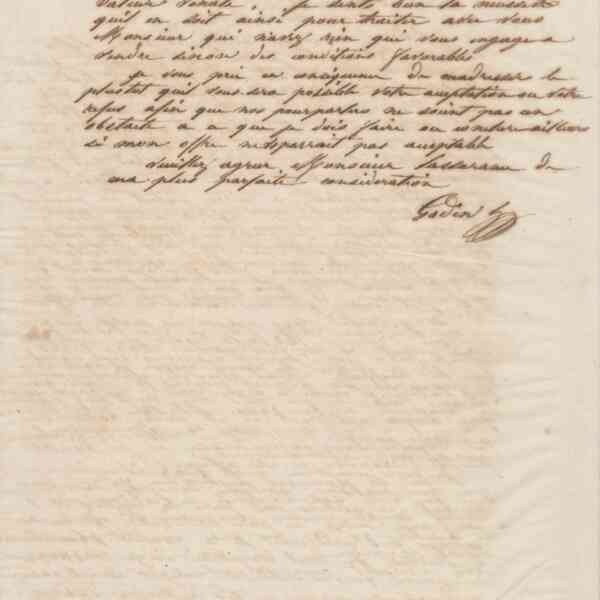 valeur vénale. Je sents bien la nécessité
quil en soit ainsi pour traiter avec vous
Monsieur qui navez rien qui vous engage a
vendre sinon des conditions favorables
je vous prie en conséquence de madresser le
plustot quil vous sera possible votre acceptation ou votre
refus afin que nos pourparlers ne soient pas un
obstacle a ce que je dois faire ou conclure ailleurs
si mon offre ne vous parrait pas acceptable
Veuillez agreer Monsieur lassurance de
ma plus parfaite consideration
Godin